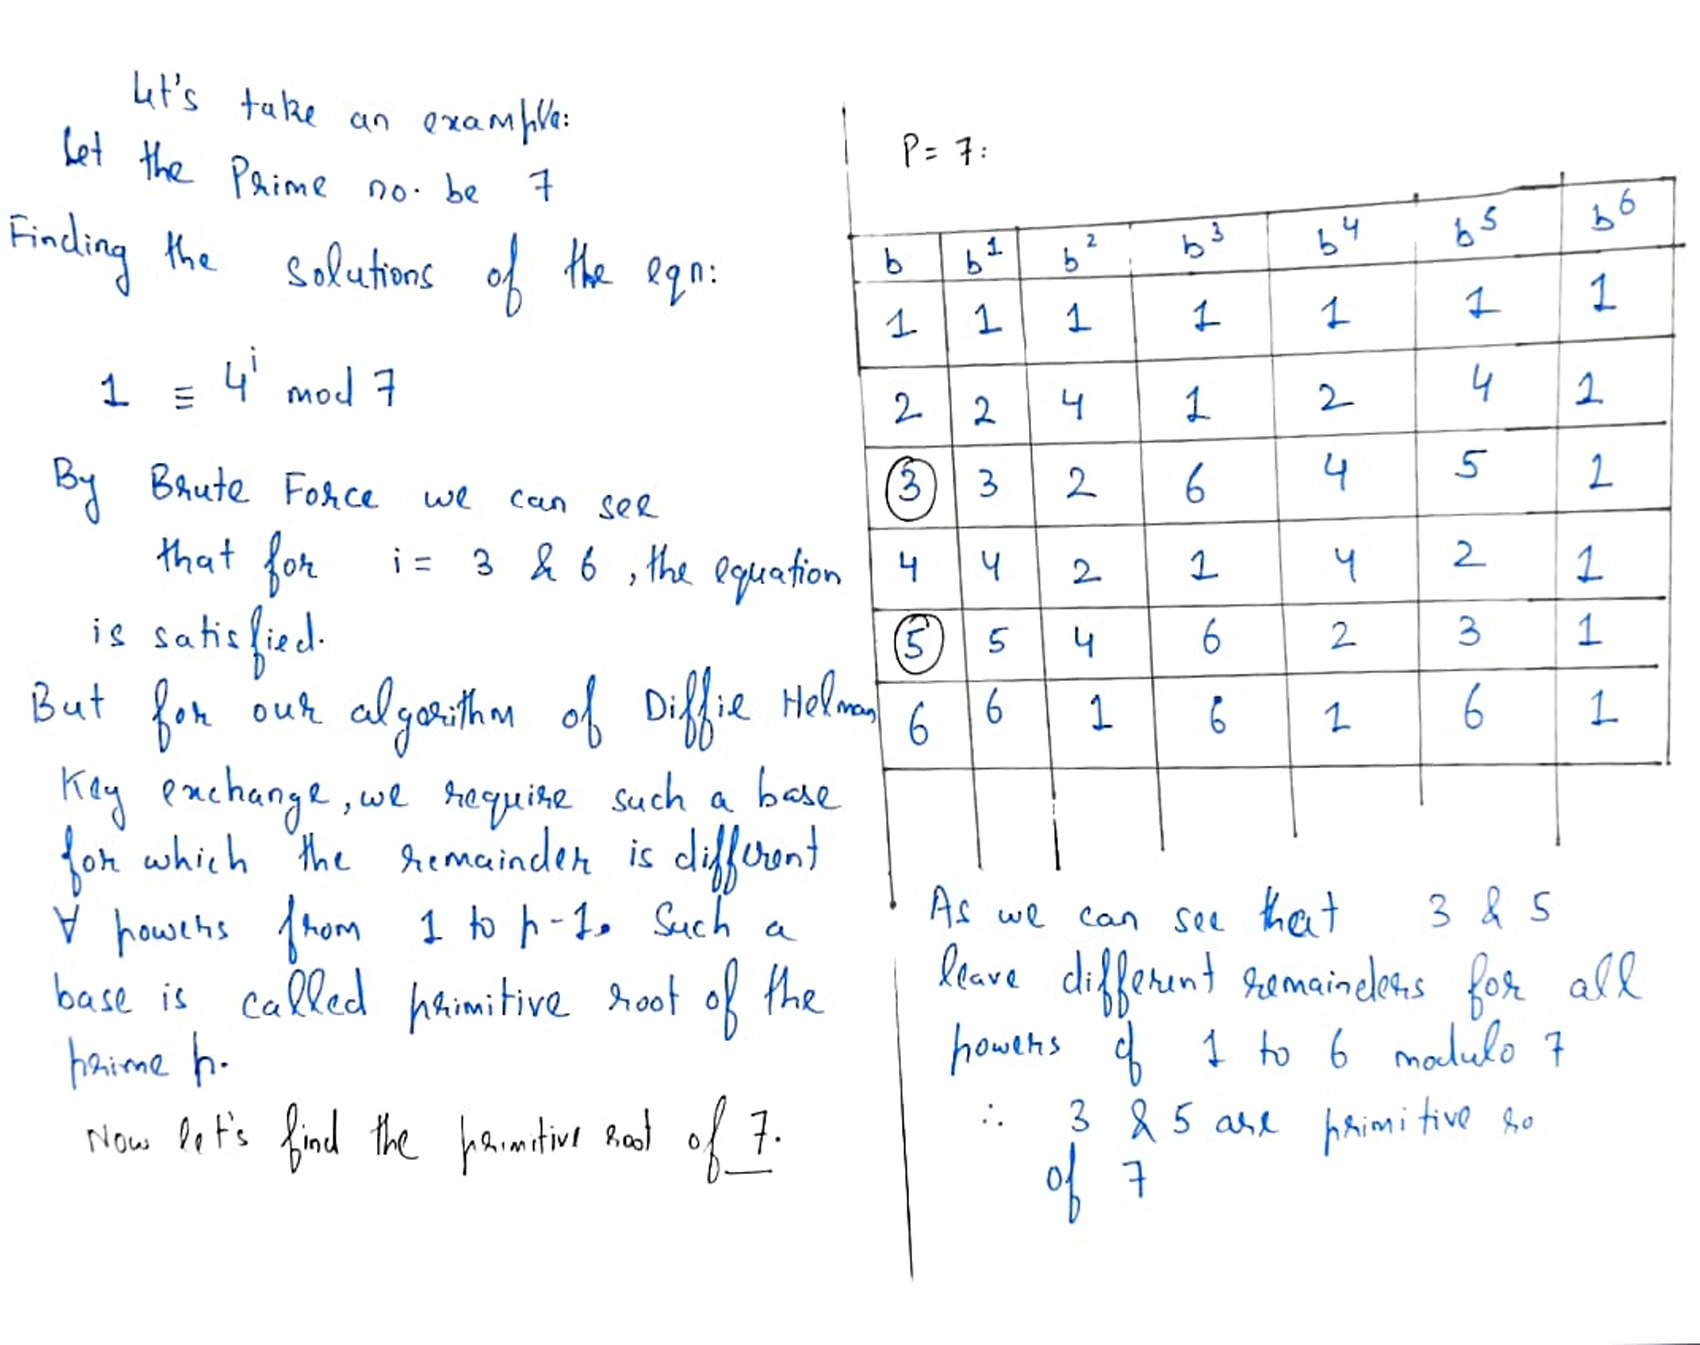 Let's take an example:
Let the Prime no. be 7
Finding the solutions of the eqn:
1 ≡ 4^i mod 7
By Brute Force we can see
that for i = 3 & 6, the equation
is satisfied.
But for our algorithm of Diffie Helman
Key exchange, we require such a base
for which the remainder is different
∀ powers from 1 to p-1. Such a
base is called primitive root of the
prime p.
Now let's find the primitive root of 7.
P = 7:
b b^1 b^2 b^3 b^4 b^5 b^6
1 1 1 1 1 1 1
2 2 4 1 2 4 1
3 3 2 6 4 5 1
4 4 2 1 4 2 1
5 5 4 6 2 3 1
6 6 1 6 1 6 1
As we can see that 3 & 5
leave different remainders for all
powers of 1 to 6 modulo 7
∴ 3 & 5 are primitive ro
of 7